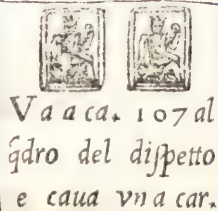 Va a ca. 107 al
q̃dro del diſpetto
e caua vna car.